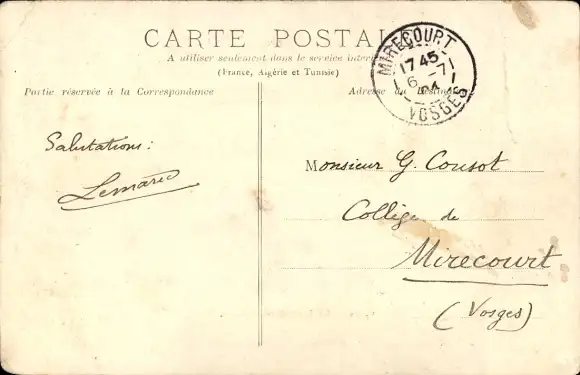 CARTE POSTAL
A utiliser seulement dans le service inter
(France, Algérie et Tunisie)
MIRECOURT
1745
6 -7
04
VOSGES
Partie réservée à la Correspondance
Adresse du Destina
Salutations:
Lemarié
Monsieur G. Cousot
Collège de
Mirecourt
(Vosges)